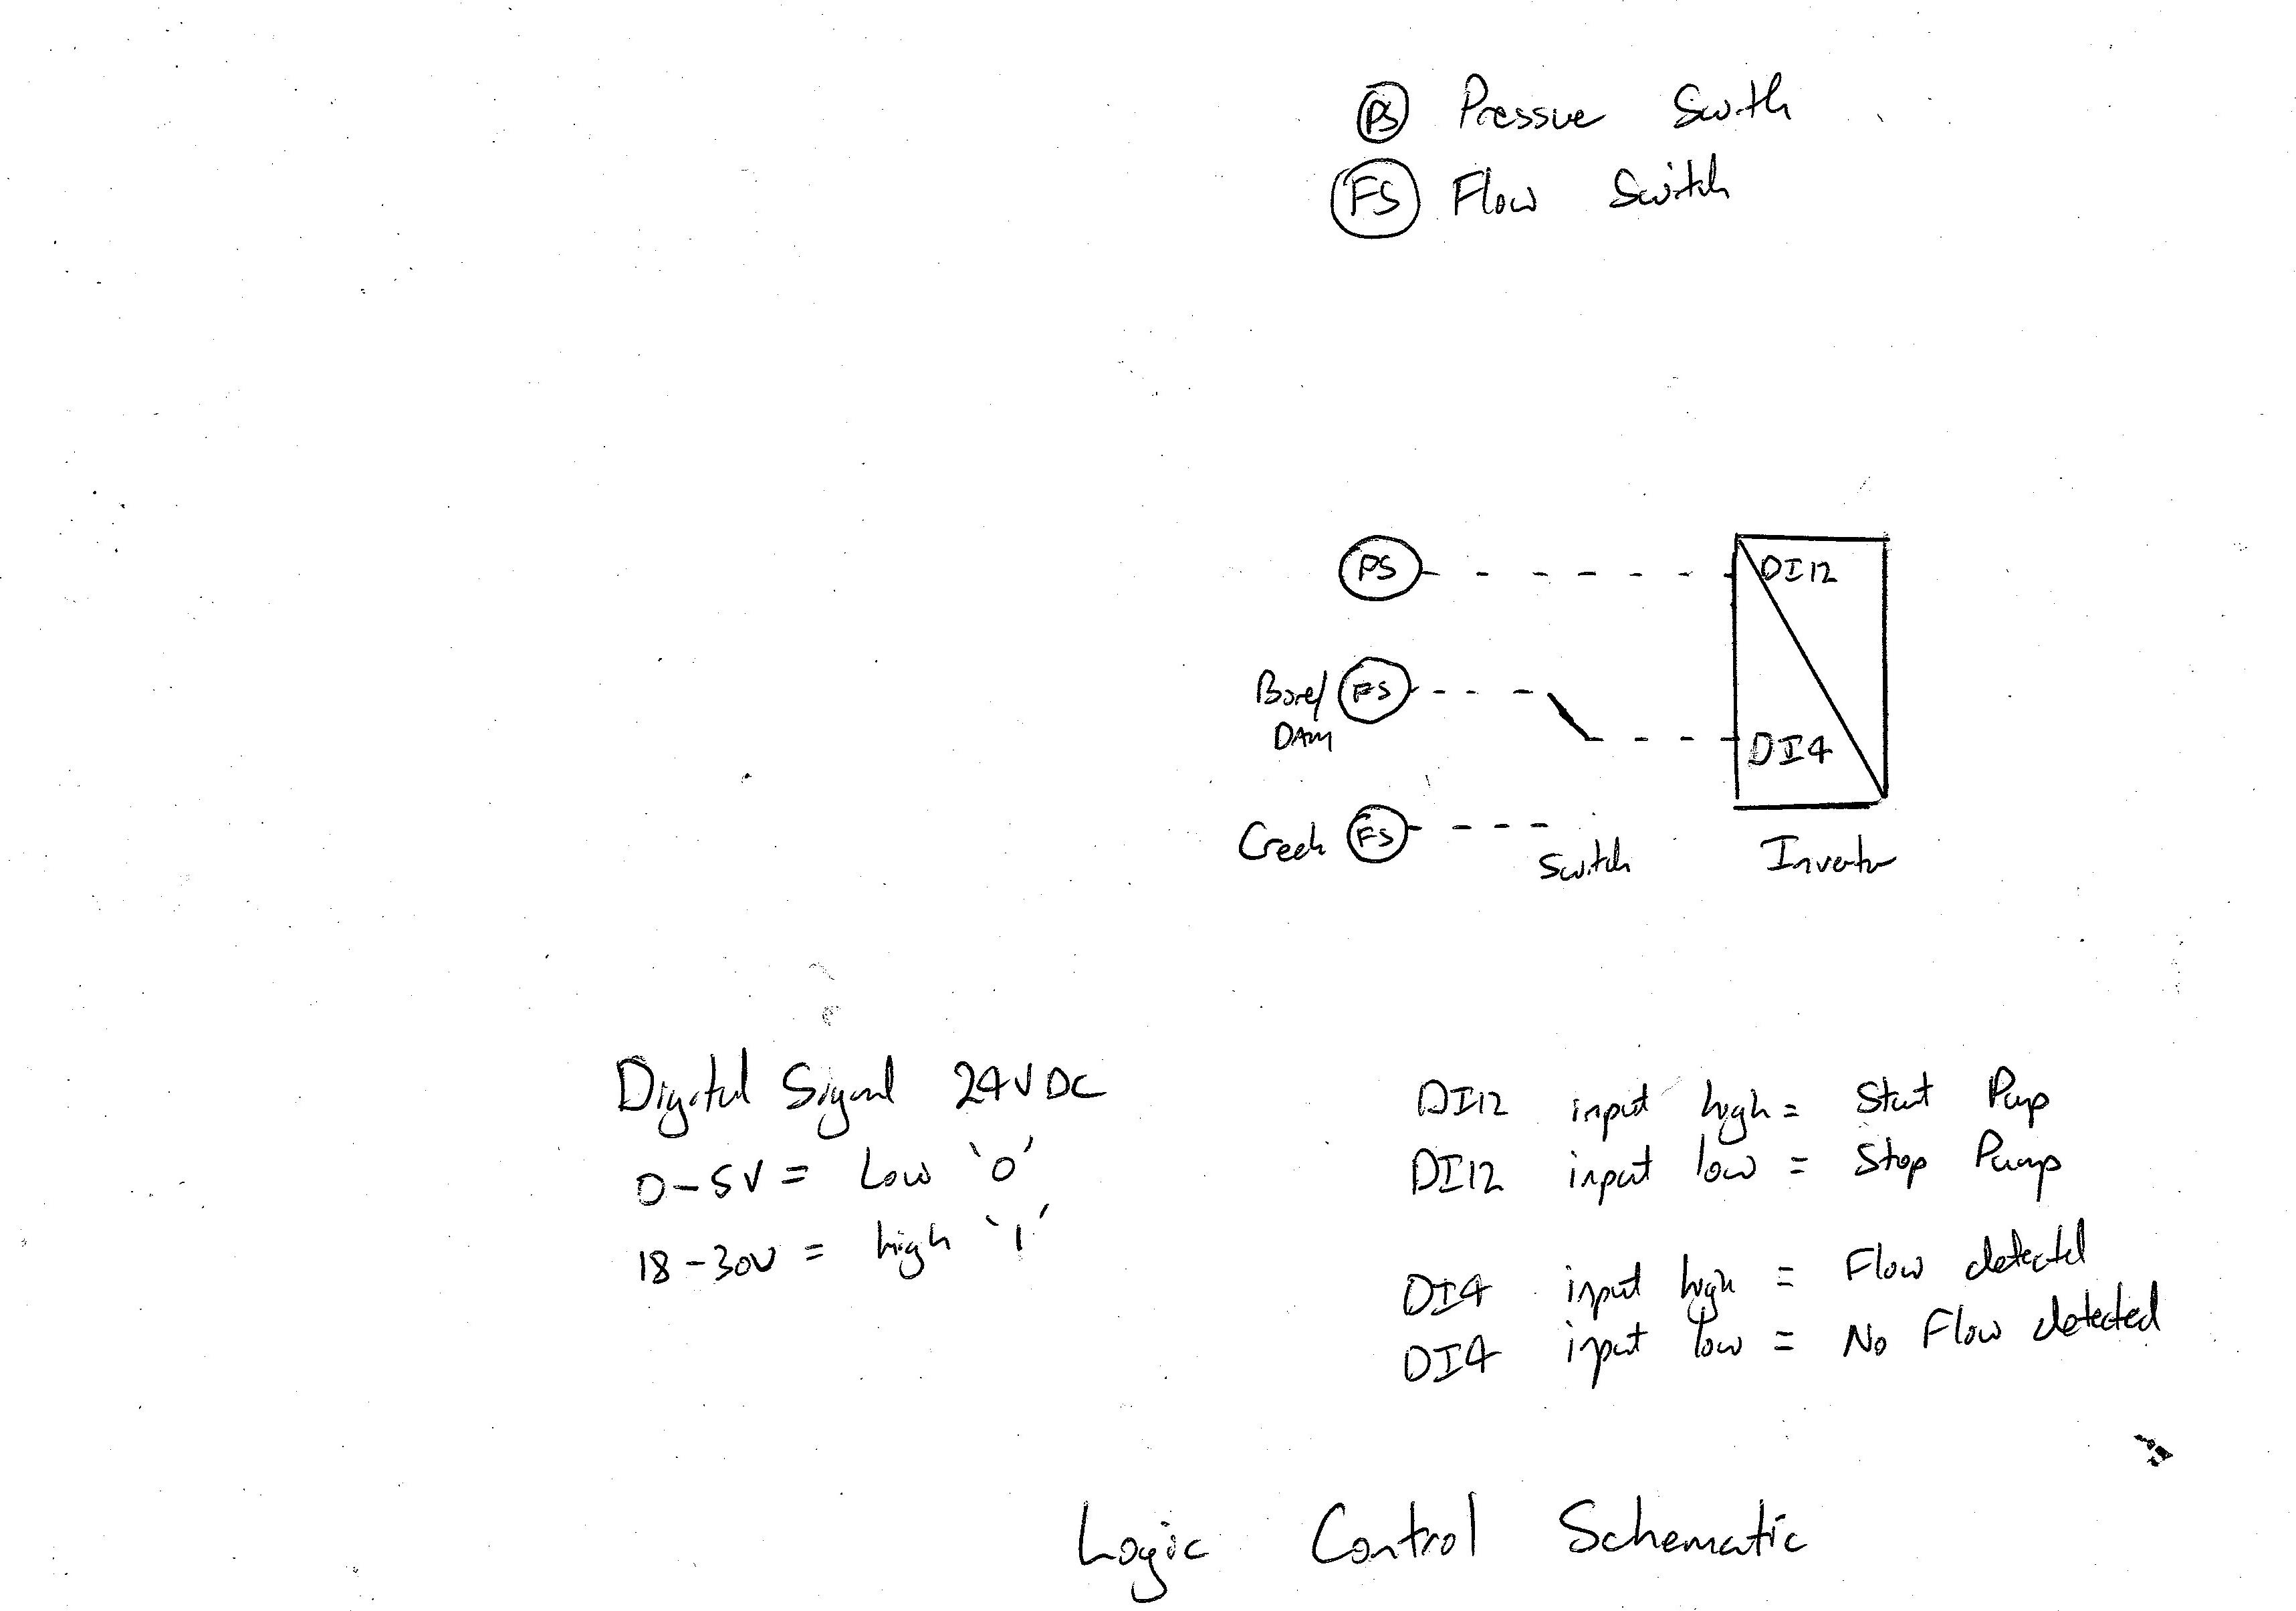 PS Pressure Switch
FS Flow Switch
PS DI12
Bore/ FS
DAM
DI4
Creek FS
Switch Invertor
Digital Signal 24V DC
0-5V = Low '0'
18-30V = high '1'
DI12 input high = Start Pump
DI12 input low = Stop Pump
DI4 input high = Flow detected
DI4 input low = No Flow detected
Logic Control Schematic